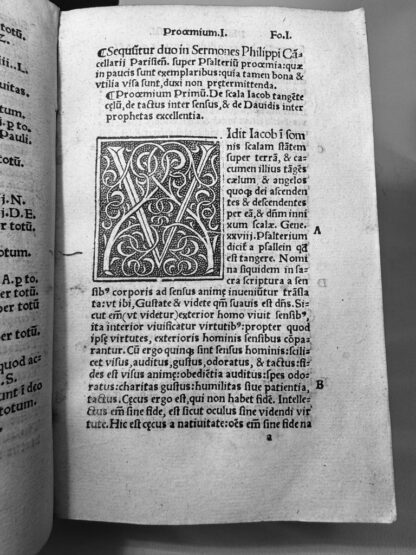 totū.
iii.L.
itas.
.p to
Pauli.
totū.
j.N.
j.D.E.
er totū.
A.p to
er totū.
er totū.
er totū.
quod ac=
.S.
unt i deo
totum.
Proœmium.I. Fo.I.
¶Sequūtur duo in Sermones Philippi Cā=
cellarii Parisieñ. super Psalteriū proœmia:quæ
in paucis sunt exemplaribus:quia tamen bona &
vtilia visa sunt,duxi non prętermittenda.
¶Proœmium Primū.De scala Iacob tangēte
cęlū, de tactus inter sensus,& de Dauidis inter
prophetas excellentia.
VIdit Iacob ī som
nis scalam stātem
super terrā, & ca=
cumen illius tāgēs
cælum & angelos
quoq; dei ascendentes
& descendentes
per eā,& dn̄m inni
xum scalæ. Gene.
xxviij.Psalterium
dicit᷑ a psallein qď
est tangere. Nomi
na siquidem in sa=
cra scriptura a sen
sibꝰ corporis ad sensus animę inueniūtur trāsla
ta:vt ibi,Gustate & videte qm̄ suauis est dn̄s. Si=
cut em̄(vt videtur)exterior homo viuit sensibꝰ,
ita interior viuificatur virtutibꝰ:propter quod
ipsę virtutes, exterioris hominis sensibus cōpa=
rantur. Cū ergo quinq; sint sensus hominis:scili=
cet visus,auditus,gustus,odoratus, & tactus:fi=
des est visus animę:obediētia auditus:spes odo=
ratus:charitas gustus:humilitas siue patientia,
tactus. Cęcus ergo est,qui non habet fidē. Intelle=
ctus em̄ sine fide, est sicut oculus sine videndi vir
tute. Hic est cęcus a natiuitate:oēs em̄ sine fide na
a
A
B